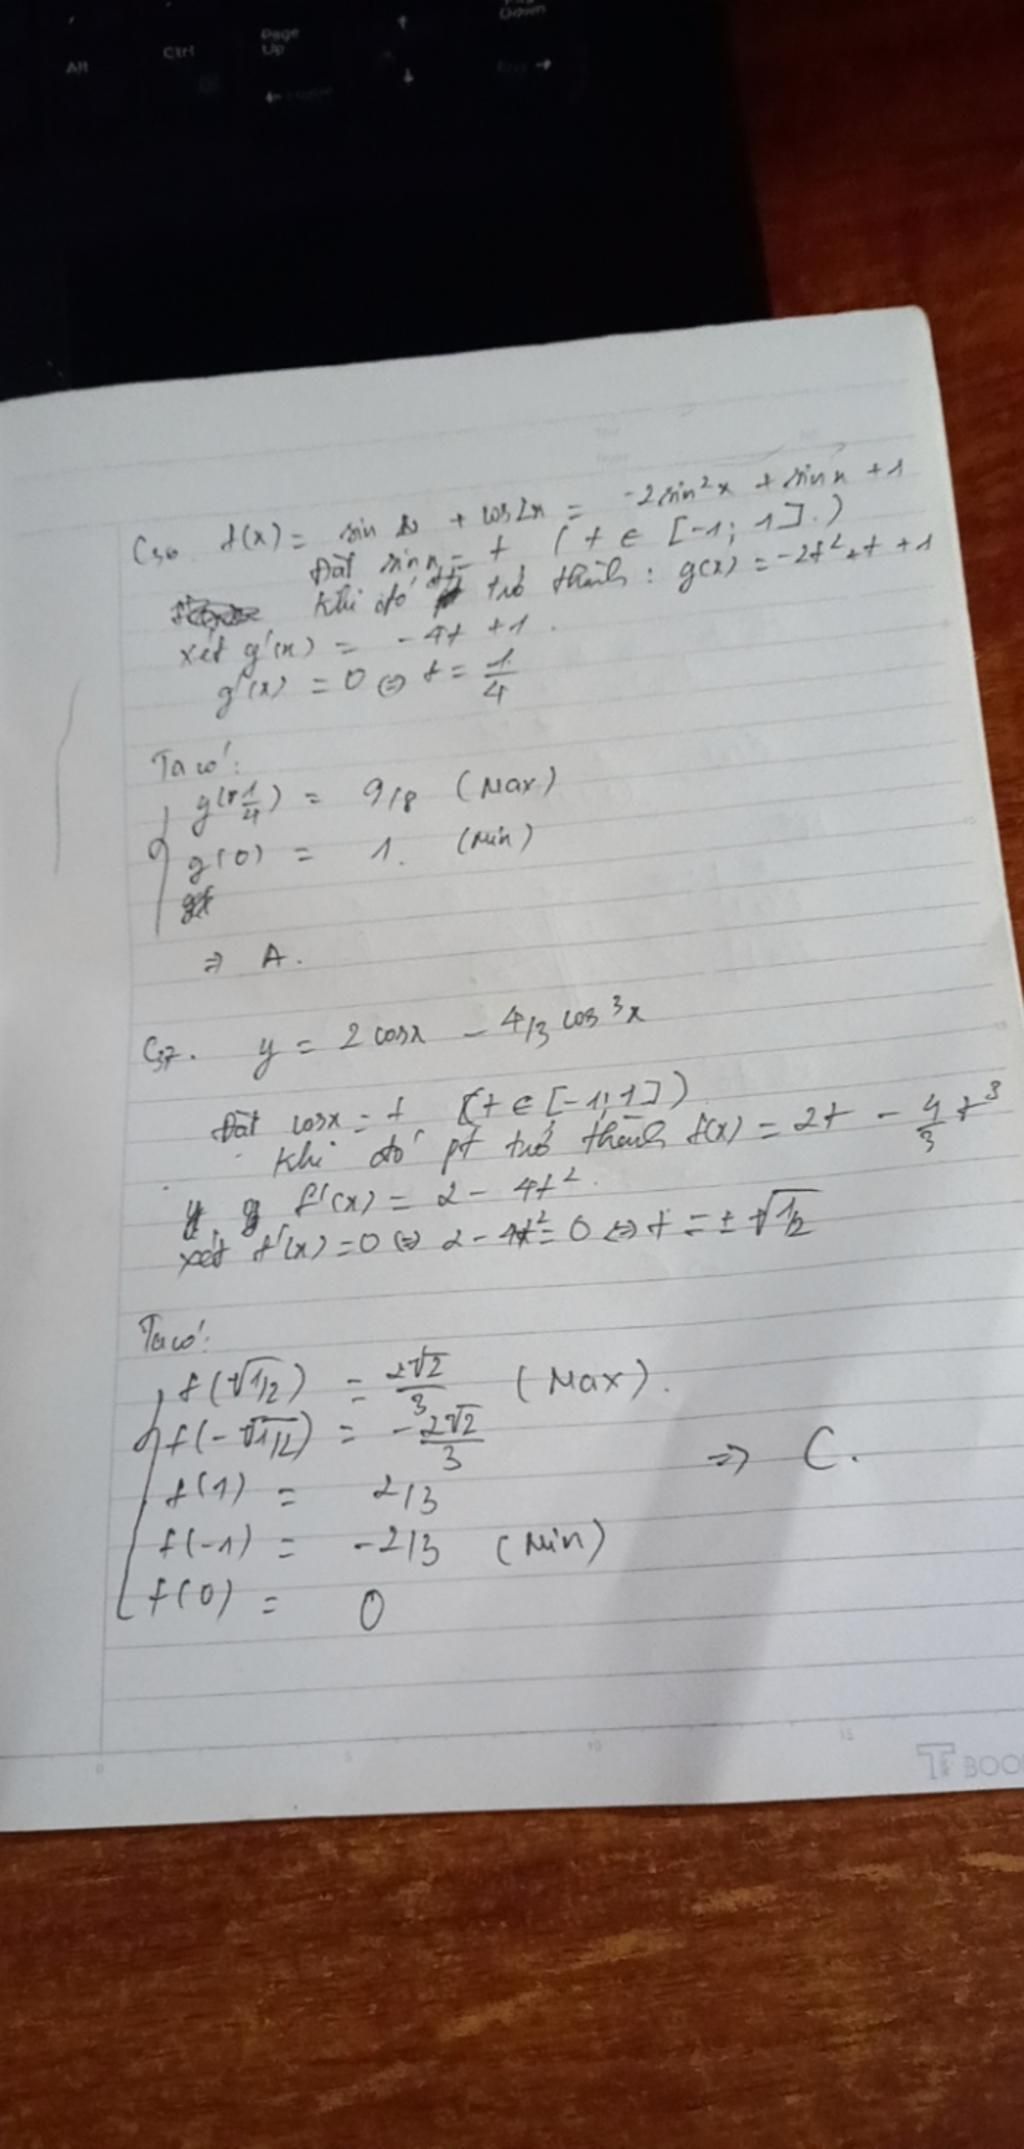 Alt
Ctrl
Page
Up
Down
C36. f(x) = sin x + cos2x = -2sin²x + sinx + 1
Đặt sinx = t (t ∈ [-1; 1].)
Khi đó pt trở thành: g(x) = -2t² + t + 1
xét g'(x) = -4t + 1.
g'(x) = 0 ⇔ t = 1/4
Ta có:
g(1/4) = 9/8 (Max)
g(0) = 1. (Min)
⇒ A.
C37. y = 2cosx - 4/3 cos³x
Đặt cosx = t (t ∈ [-1; 1])
Khi đó pt trở thành f(x) = 2t - 4/3 t³
f'(x) = 2 - 4t².
xét f'(x) = 0 ⇔ 2 - 4t² = 0 ⇔ t = ±√1/2
Ta có:
f(√1/2) = 2√2/3 (Max).
f(-√1/2) = -2√2/3
⇒ C.
f(1) = 2/3
f(-1) = -2/3 (Min)
f(0) = 0
0 5 10 15
BOO